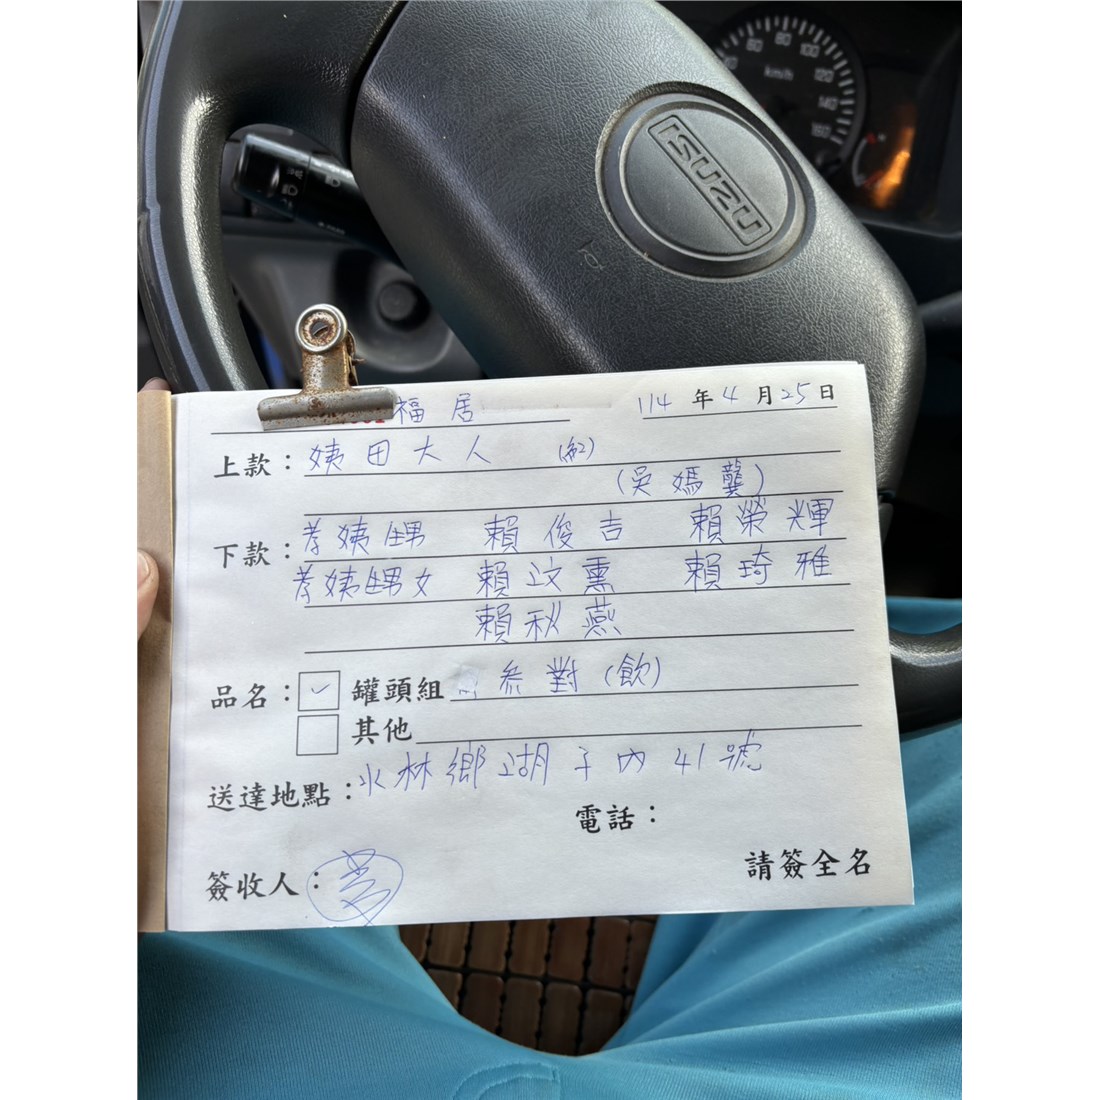 60 80 100 120 140 160
km/h
ISUZU
福居 114年4月25日
上款：姨田大人
(吳媽龔)
下款：孝姨甥男 賴俊吉 賴榮輝
孝姨甥女 賴玟熏 賴琦雅
賴秋燕
品名：✓ 罐頭組 叁對(飲)
其他
送達地點：水林鄉湖子內41號
電話：
簽收人： 請簽全名